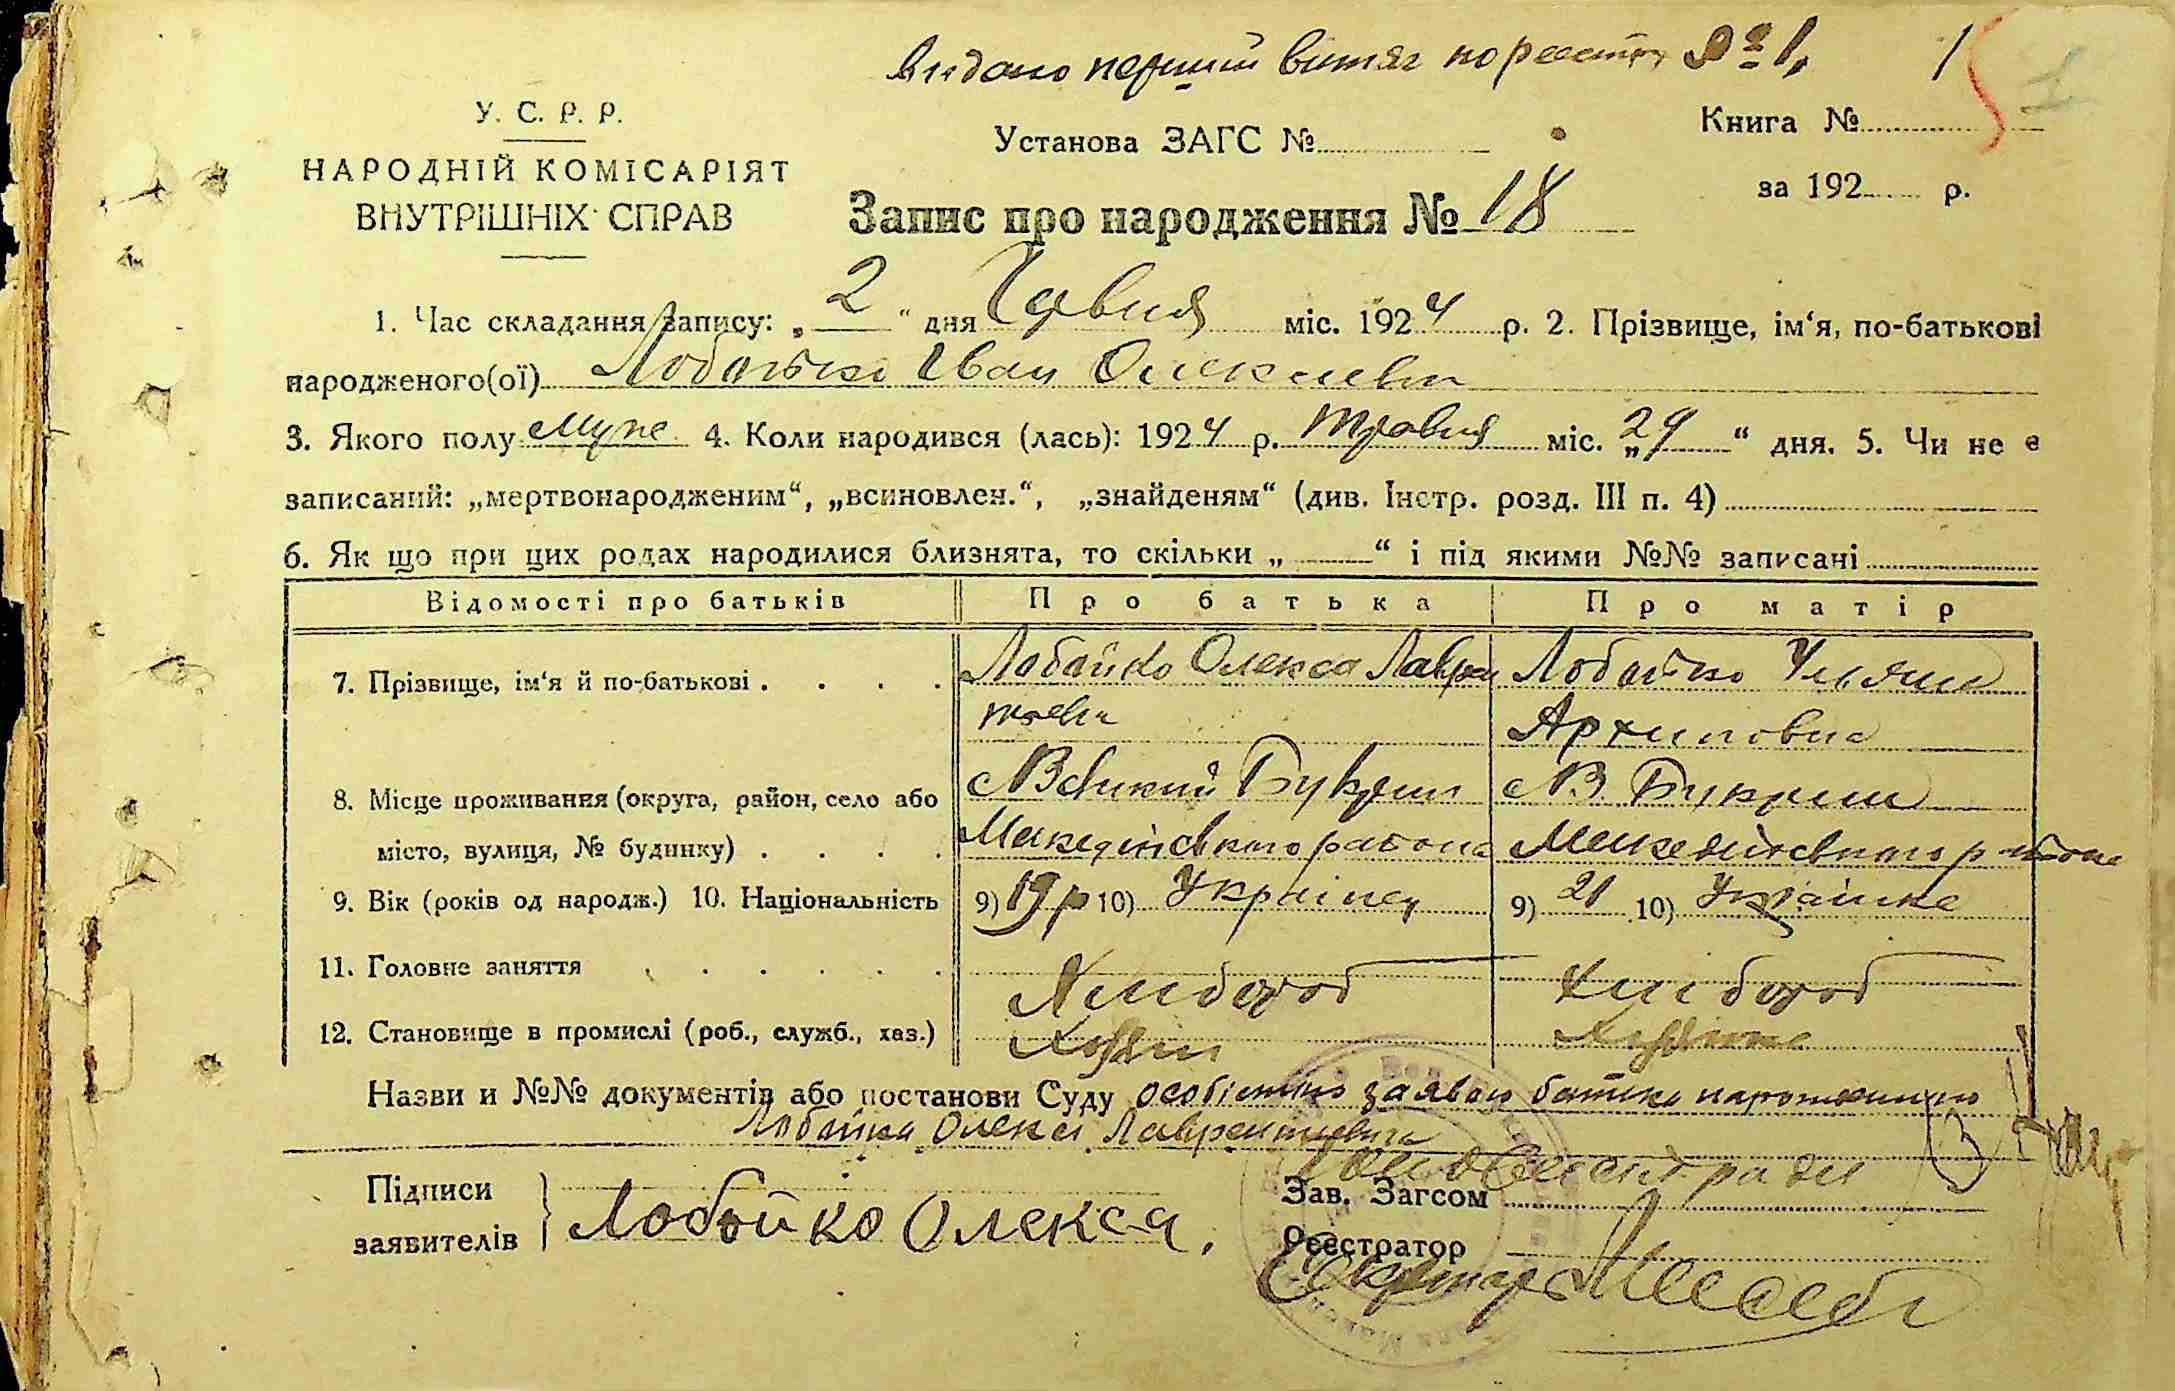 Видано перший витяг по реестру № 1, 1
У. С. Р. Р.
НАРОДНІЙ КОМІСАРІЯТ
ВНУТРІШНІХ СПРАВ
Установа ЗАГС №
Книга №
за 192 р.
Запис про народження № 18
1. Час складання запису: „ 2 “ дня Червня міс. 1924 р. 2. Прізвище, ім‘я, по-батькові
народженого(ої) Лобойко Іван Олексиевич
3. Якого полу муж. 4. Коли народився (лась): 1924 р. травня міс. „29“ дня. 5. Чи не є
записаний: „мертвонародженим“, „всиновлен.“, „знайденям“ (див. Інстр. розд. III п. 4)
6. Як що при цих родах народилися близнята, то скільки „ “ і під якими №№ записані
Відомості про батьків Про батька Про матір
7. Прізвище, ім‘я й по-батькові . . . . Лобойко Олекса Лаврен Лобойко Уляна
тиевич Архиповна
8. Місце проживання (округа, район, село або с Великий Букрин с В. Букрин
місто, вулиця, № будинку) . . . . района района
9. Вік (років од народж.) 10. Національність 9) 19 р 10) Українец 9) 21 10) Українка
11. Головне заняття . . . . . . Хлібороб Хлібороб
12. Становище в промислі (роб., служб., хаз.) Хозяин Хозяйка
Назви и №№ документів або постанови Суду особістою заявою батька народженного
Лобойка Олекси Лаврентиевича
Голова Сельради
Підписи Зав. Загсом
заявителів Лобойко Олекса.
Реєстратор
Секретарь